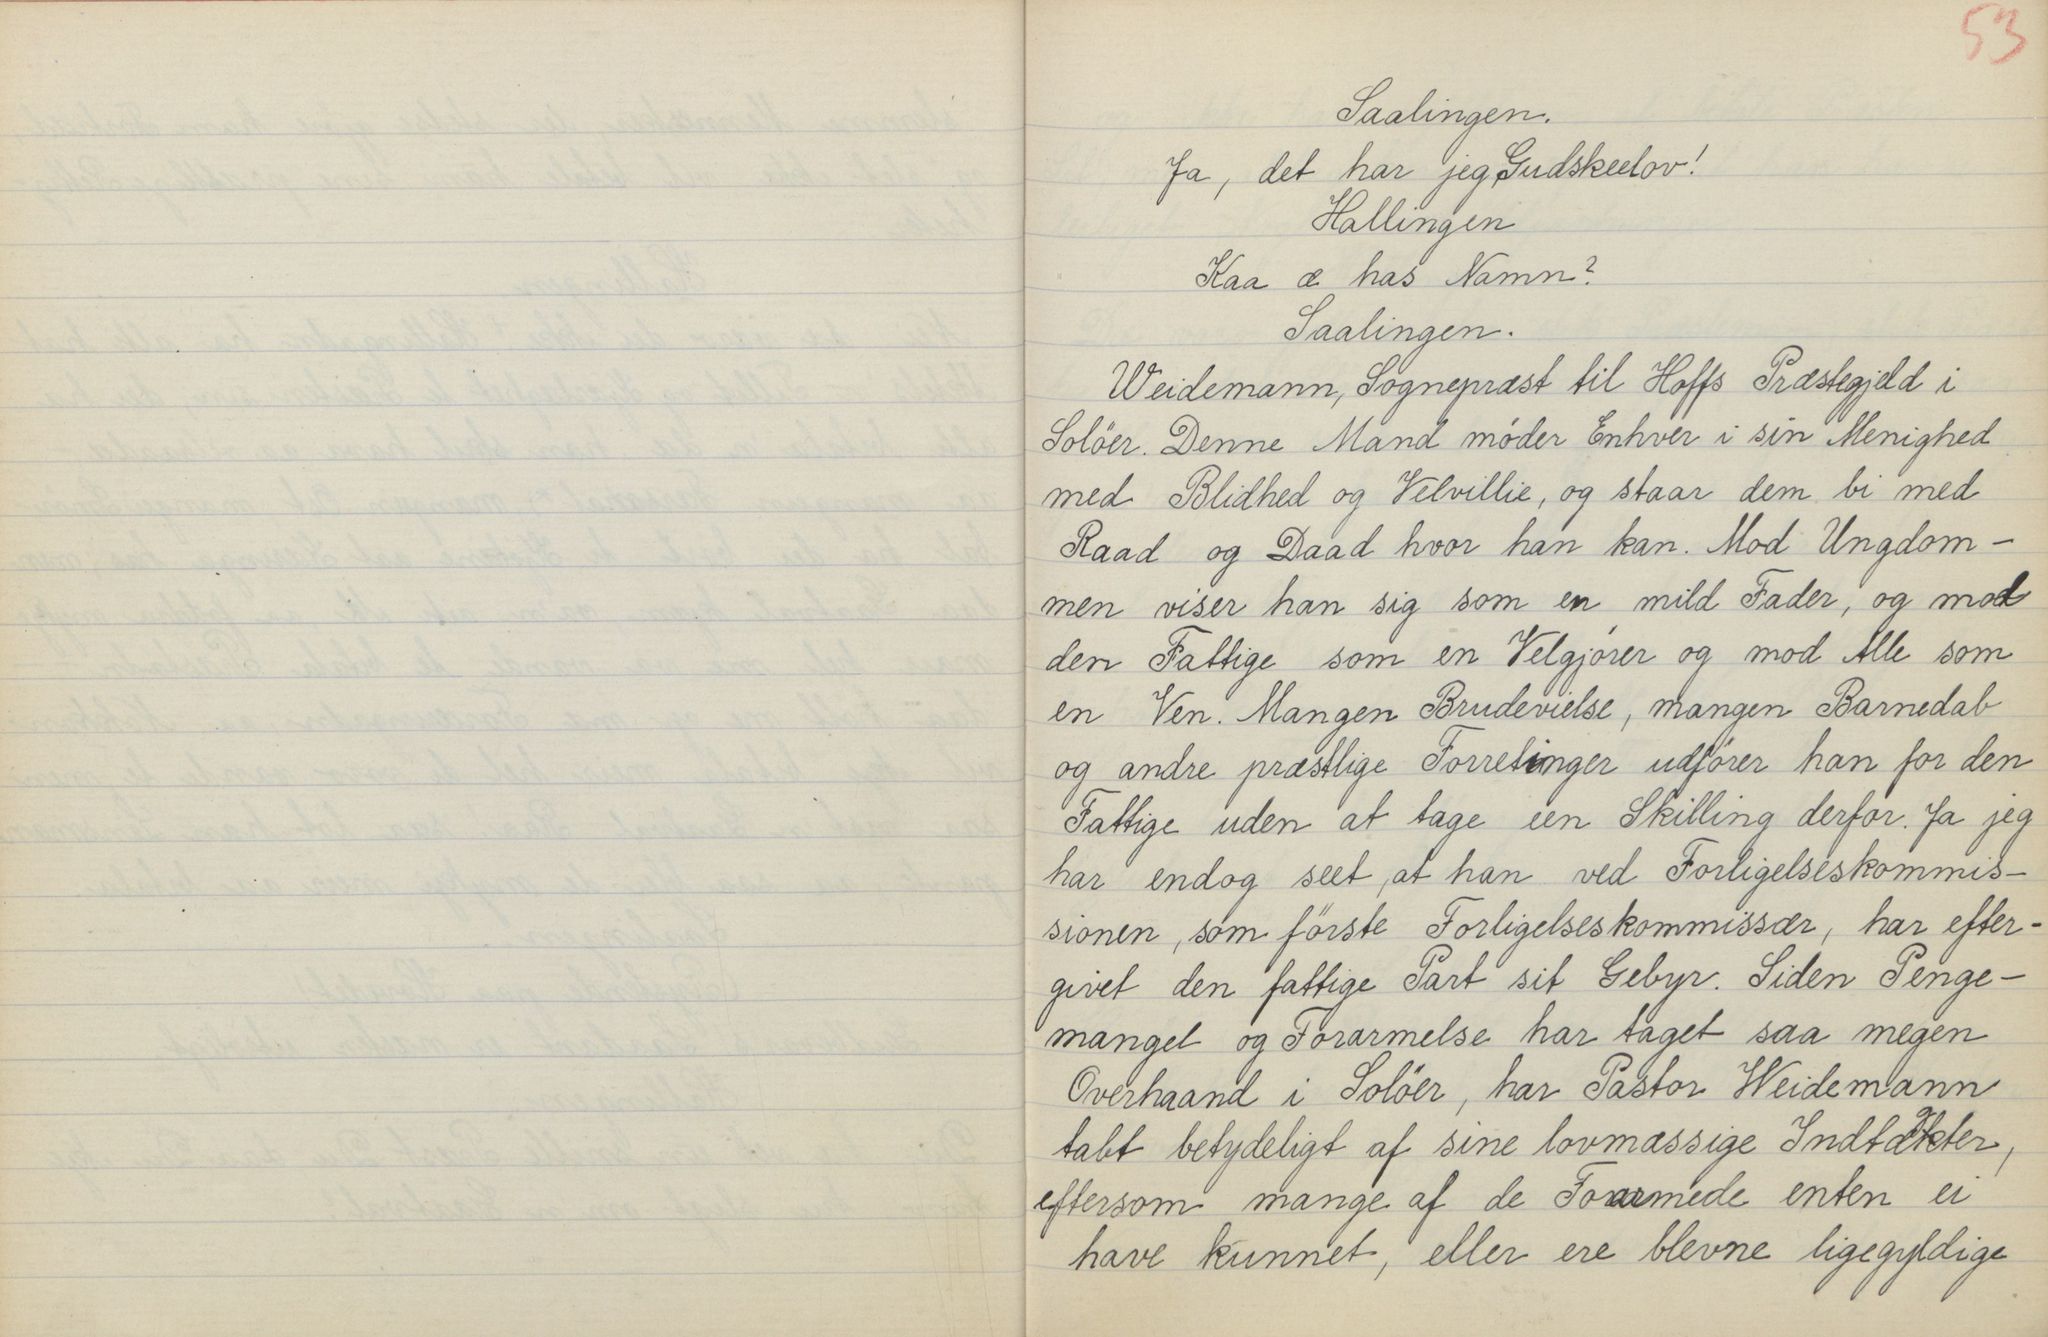 53
Saalingen.
Ja, det har jeg Gudskeelov!
Hallingen
Kaa æ has Namn?
Saalingen.
Weidemann, Sognepræst til Hoffs Præstegjeld i
Solöer. Denne Mand möder Enhver i sin Menighed
med Blidhed og Velvillie, og staar dem bi med
Raad og Daad hvor han kan. Mod Ungdom-
men viser han sig som en mild Fader, og mod
den Fattige som en Velgjörer og mod Alle som
en Ven. Mangen Brudevielse, mangen Barnedab
og andre præstlige Forretinger udförer han for den
Fattige uden at tage een Skilling derfor. Ja jeg
har endog seet, at han ved Forligelseskommis-
sionen, som förste Forligelseskommissær, har efter-
givet den fattige Part sit Gebyr. Siden Penge-
mangel og Forarmelse har taget saa megen
Overhaand i Solöer, har Pastor Weidemann
tabt betydeligt af sine lovmæssige Indtægter,
eftersom mange af de Forarmede enten ei
have kunnet, eller ere blevne ligegyldige